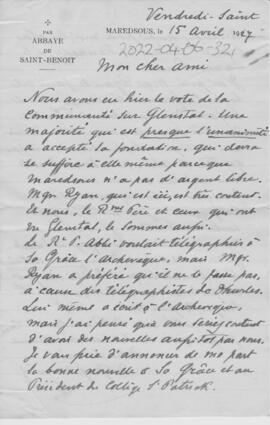 Vendredi-Saint
PAX
ABBAYE
DE
SAINT-BENOIT
MAREDSOUS, le 15 Avril 1927
2022-04-06-32
Mon cher ami
Nous avons eu hier le vote de la
Communauté sur Glenstal. Une
majorité qui est presque l'unanimité
a accepté la fondation, qui devra
se suffire à elle même parceque
Maredsous n'a pas d'argent libre.
Mgr Ryan, qui est ici, est très content.
Et nous, le Rme Père et ceux qui ont
vu Glenstal, le sommes aussi.
Le R. P. Abbé voulait télégraphier à
Sa Grâce l'Archevêque, mais Mgr.
Ryan a préféré qu'il ne le fasse pas,
à cause des télégraphistes de Thurles.
Lui même a écrit à l'Archevêque,
mais j'ai pensé que vous seriez content
d'avoir des nouvelles aussitôt par nous.
Je vous prie d'annoncer de ma part
la bonne nouvelle à Sa Grâce et au
Président du Collège St Patrick.